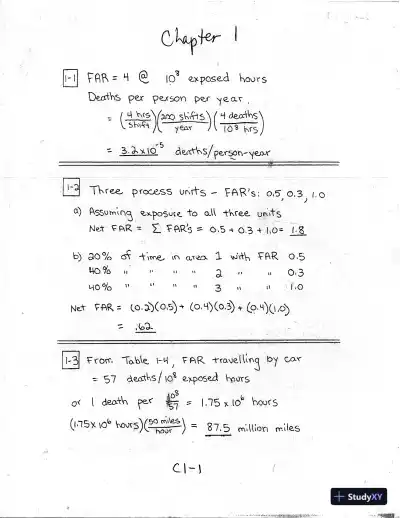 Chapter 1
1-1 FAR = 4 @ 10⁸ exposed hours
Deaths per person per year.
= (4 hrs/shift)(200 shifts/year)(4 deaths/10⁸ hrs)
= 3.2×10⁻⁵ deaths/person-year
1-2 Three process units - FAR's: 0.5, 0.3, 1.0
a) Assuming exposure to all three units
Net FAR = Σ FAR's = 0.5 + 0.3 + 1.0 = 1.8
b) 20% of time in area 1 with FAR 0.5
40% " " " " 2 " " 0.3
40% " " " " 3 " " 1.0
Net FAR = (0.2)(0.5) + (0.4)(0.3) + (0.4)(1.0)
= .62
1-3 From Table 1-4, FAR travelling by car
= 57 deaths/10⁸ exposed hours
or 1 death per 10⁸/57 = 1.75 x 10⁶ hours
(1.75 x 10⁶ hours)(50 miles/hour) = 87.5 million miles
C1-1
StudyXY